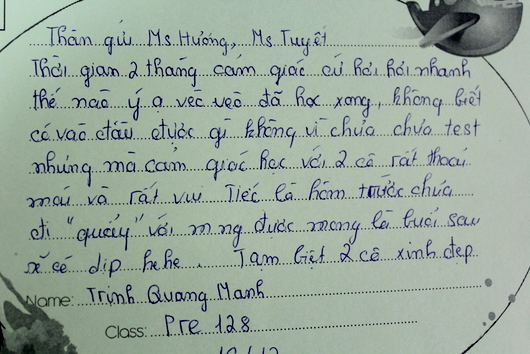 Thân gửi Ms Hương, Ms Tuyết
Thời gian 2 tháng cảm giác cứ hơi hơi nhanh
thế nào ý ạ vèo vèo đã học xong, không biết
có vào đầu được gì không vì chưa chưa test
nhưng mà cảm giác học với 2 cô rất thoải
mái và rất vui Tiếc là hôm trước chưa
đi "quẩy" với m.ng được mong là buổi sau
sẽ có dịp hehe. Tạm biệt 2 cô xinh đẹp
Name: Trịnh Quang Mạnh
Class: Pre 128